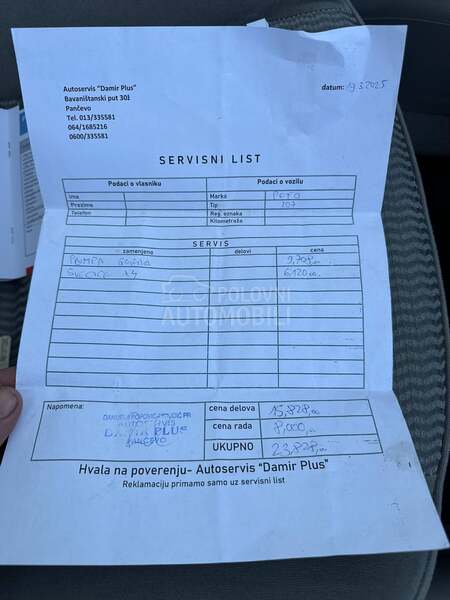 Autoservis "Damir Plus"
Bavaništanski put 303
Pančevo
Tel. 013/335581
064/1685216
0600/335581
datum: 19.3.2025
SERVISNI LIST
Podaci o vlasniku Podaci o vozilu
Ime Marka PEŽO
Prezime Tip 207
Telefon Reg. oznaka
Kilometraža
SERVIS
zamenjeno delovi cena
PUMPA 9,708,00
SVEĆICE x4 6,120,00
POLOVNI
AUTOMOBILI
Napomena:
AUTOSERVIS
DAMIR PLUS
PANČEVO
cena delova 15,828,00
cena rada 8,000,00
UKUPNO 23,828,00
Hvala na poverenju- Autoservis "Damir Plus"
Reklamaciju primamo samo uz servisni list